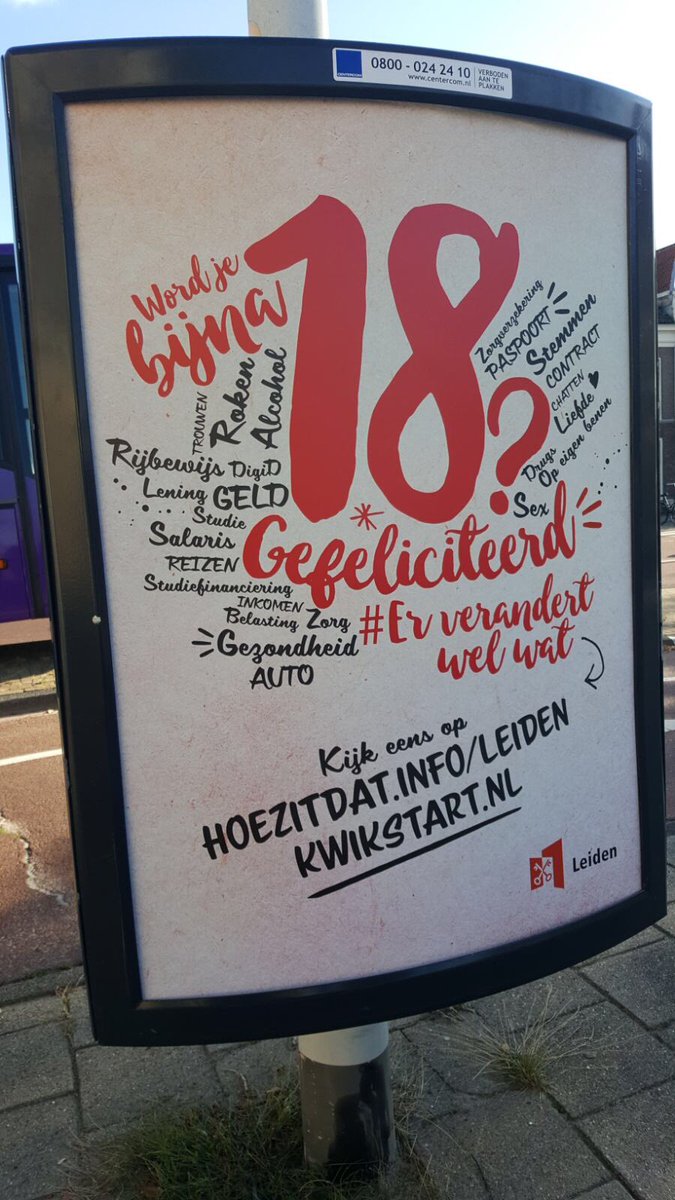 CENTERCOM
0800 - 024 24 10
www.centercom.nl
VERBODEN
AAN TE
PLAKKEN
Word je
bijna
18?
TROUWEN
Roken
Alcohol
Rijbewijs DigiD
Lening GELD
Studie
Salaris
REIZEN
Studiefinanciering
INKOMEN
Belasting Zorg
Gezondheid
AUTO
Zorgverzekering
PASPOORT
Stemmen
CONTRACT
CHATTEN
Liefde
Drugs
Op eigen benen
Sex
*Gefeliciteerd
#Er verandert
wel wat
Kijk eens op
HOEZITDAT.INFO/LEIDEN
KWIKSTART.NL
Leiden